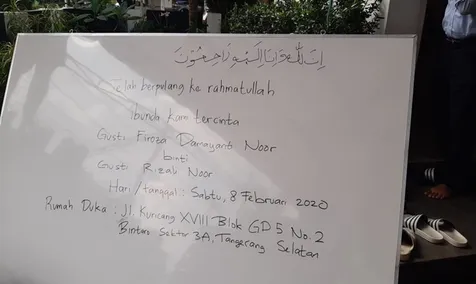 إنا لله وإنا إليه راجعون
Telah berpulang ke rahmatullah
Ibunda kami tercinta
Gusti Firoza Damayanti Noor
binti
Gusti Rizali Noor
Hari / tanggal : Sabtu, 8 Februari 2020
Rumah Duka : Jl. Kuricang XVIII Blok GD 5 No. 2
Bintaro Sektor 3A, Tangerang Selatan